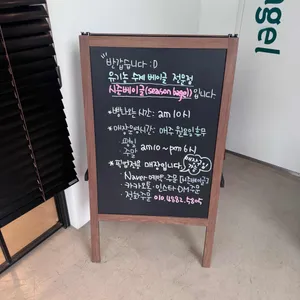 반갑습니다 :D
유기농 수제 베이글 전문점
시즌베이글(season bagel)입니다.
* 빵나오는 시간: am 10시
* 매장운영시간: 매주 월요일 휴무
평일
주말
am 10 ~ pm 6시
* 픽업전용 매장입니다.
Naver 예약·주문
· 카카오톡 · 인스타 DM 주문
· 전화주문 010.4882.5805
agel